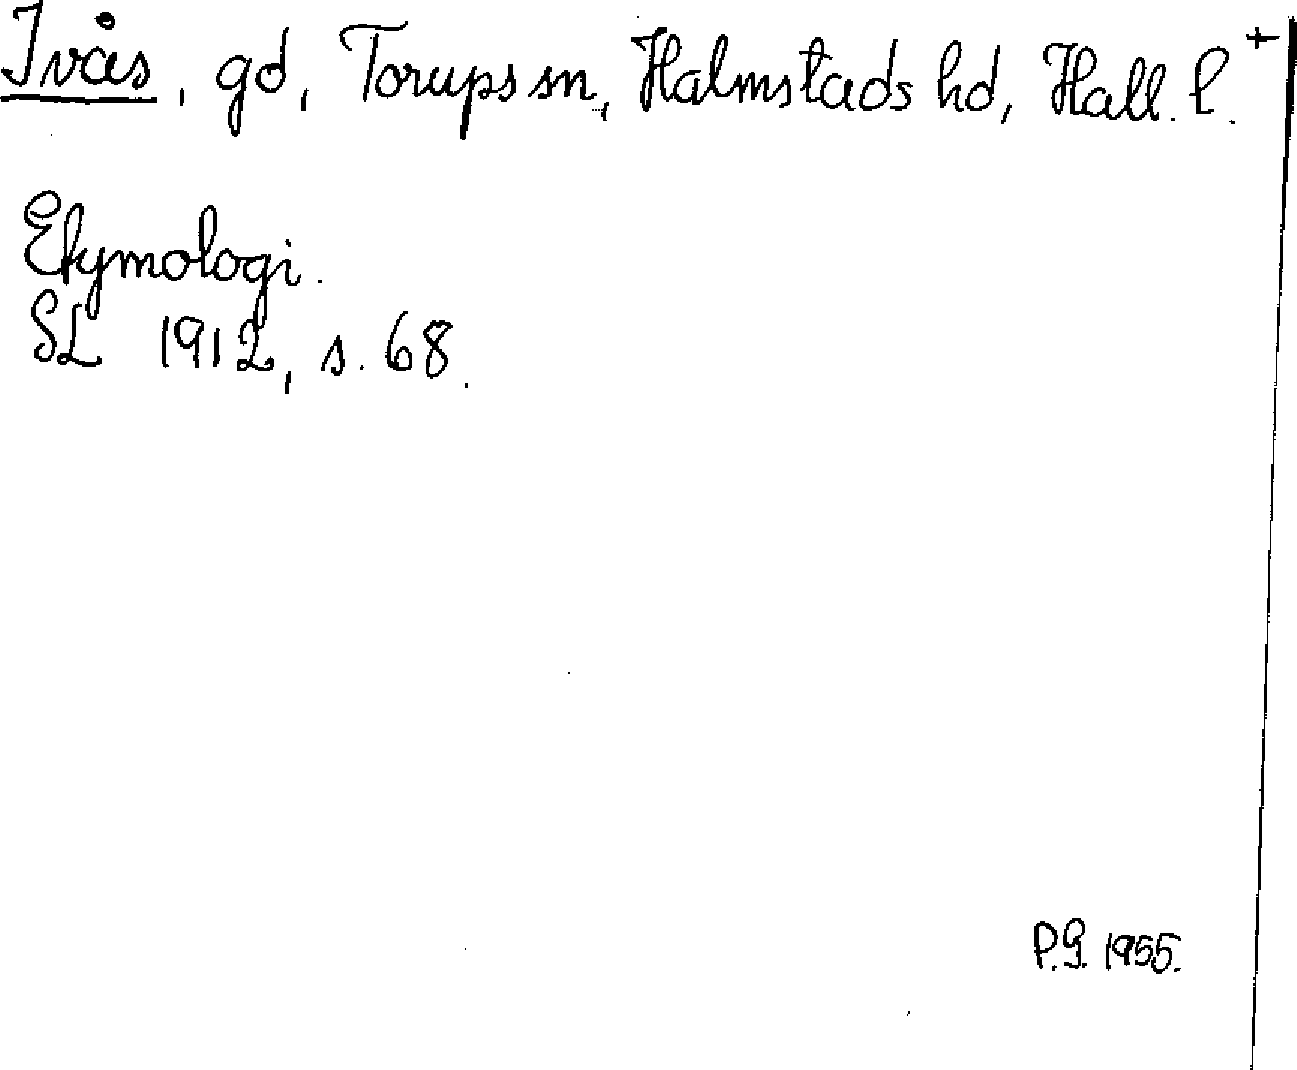 Ivås, gd, Torups sn, Halmstads hd, Hall. l. +
Etymologi.
SL 1912, s. 68.
P.G. 1955.